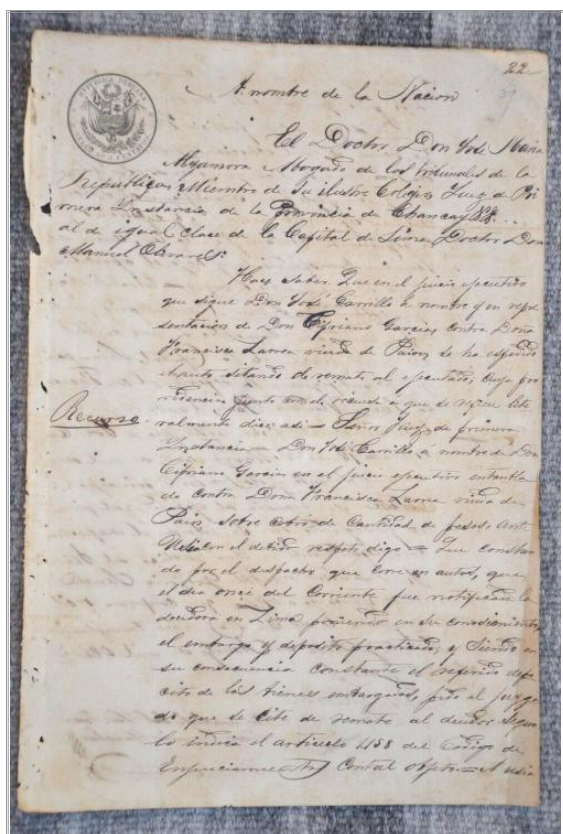 22
A nombre de la Nacion
El Doctor Don José Maria
Abogado de los tribunales de la
Republica, Miembro de su ilustre Colegio, Juez de Pri
mera Instancia de la Provincia de Chancay
al de igual clase de la Capital de Lima Doctor Don
Manuel Olivares:
Hace saber: Que en el juicio ejecutivo
que sigue Don José Carrillo á nombre y en repre
sentacion de Don Cipriano Garcia, contra Doña
Francisca Larrea viuda de se ha espedido
el auto citando de remate al ejecutado, cuya pro
videncia junto con el recurso á que se refiere lite
Recurso
ralmente dice asi = Señor Juez de primera
Instancia = Don José Carrillo á nombre de Don
Cipriano Garcia en el juicio ejecutivo entabla
do contra Doña Francisca Larrea viuda de
sobre cobro de cantidad de pesos, ante
Usted con el debido respeto digo = Que constan
do por el despacho que corre en autos, que
el dia once del corriente fue notificada la
deudora en Lima poniendo en su conocimiento,
el embargo y deposito practicado, y siendo en
su consecuencia constante el referido depo
cito de los bienes embargados, pido al juzga
do que se cite de remate al deudor segun
lo indica el articulo 1158 del Codigo de
Enjuiciamientos Con tal objeto =